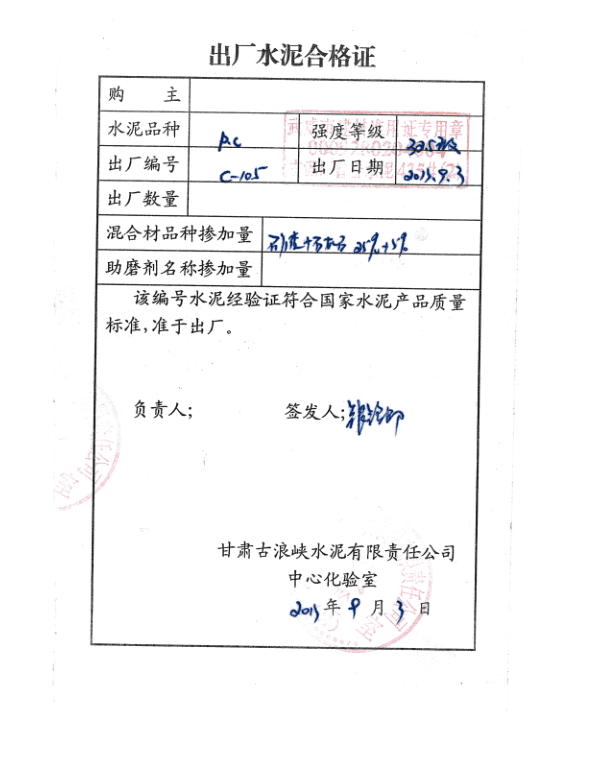 出厂水泥合格证
购 主
水泥品种 P.C 强度等级 32.5级
出厂编号 C-105 出厂日期 2013.9.3
出厂数量
混合材品种掺加量 25%+5%
助磨剂名称掺加量
该编号水泥经验证符合国家水泥产品质量
标准,准于出厂。
负责人; 签发人;
甘肃古浪峡水泥有限责任公司
中心化验室
2013年9月3日